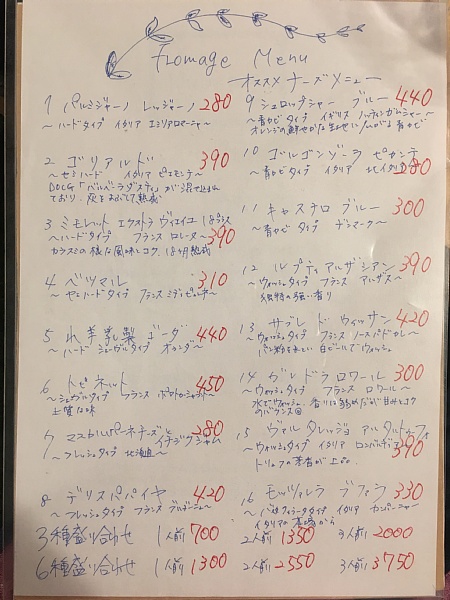 Fromage Menu
オススメ チーズメニュー
1 パルミジャーノ レッジャーノ 280
～ハードタイプ イタリア エミリアロマーニャ～
2 ゴリアルド 390
～セミハード イタリア ピエモンテ～
DOCG「バルベーラダスティ」が
ており、灰をまぶして熟成
3 ミモレット エクストラ ヴィエイユ 18ヶ月 390
～ハードタイプ フランス ロレーヌ～
カラスミの様な風味とコク、18ヶ月熟成
4 ベツマル 310
～セミハードタイプ フランス ミディピレネー～
5 れ羊乳製 ゴーダ 440
～ハード シェーヴルタイプ オランダ～
6 トピネット 450
～シェーヴルタイプ フランス
上質な味
7 マスカルパーネチーズと イチジクジャム 280
～フレッシュタイプ 北海道～
8 デリスパパイヤ 420
～フレッシュタイプ フランス ブルゴーニュ～
9 シュロップシャー ブルー 440
～青カビタイプ イギリス ノッティンガムシャー～
オレンジの鮮やかな生地に広がる青カビ
10 ゴルゴンゾーラ ピカンテ 280
～青カビタイプ イタリア 北イタリア～
11 キャステロ ブルー 300
～青カビ タイプ デンマーク～
12 ルプティ アルザシアン 390
～ウォッシュタイプ フランス アルザス～
独特の強い香り
13 サブレ ド ウィッサン 420
～ウォッシュタイプ フランス ノールパドカレー～
パン粉をまとい 白ビールでウォッシュ
14 カレドラロワール 300
～ウォッシュタイプ フランス ロワール～
水でウォッシュ、香りは弱めだが甘みとコク
のバランス◎
15 ヴァル タレッジョ アルタルトゥーフォ 390
～ウォッシュタイプ イタリア ロンバルディア～
トリュフの芳香が上品
16 モッツァレラ ブファラ 330
～パスタフィラータタイプ イタリア カンパーニャ～
イタリアの本場から
3種盛り合わせ 1人前 700 2人前 1350 3人前 2000
6種盛り合わせ 1人前 1300 2人前 2550 3人前 3750